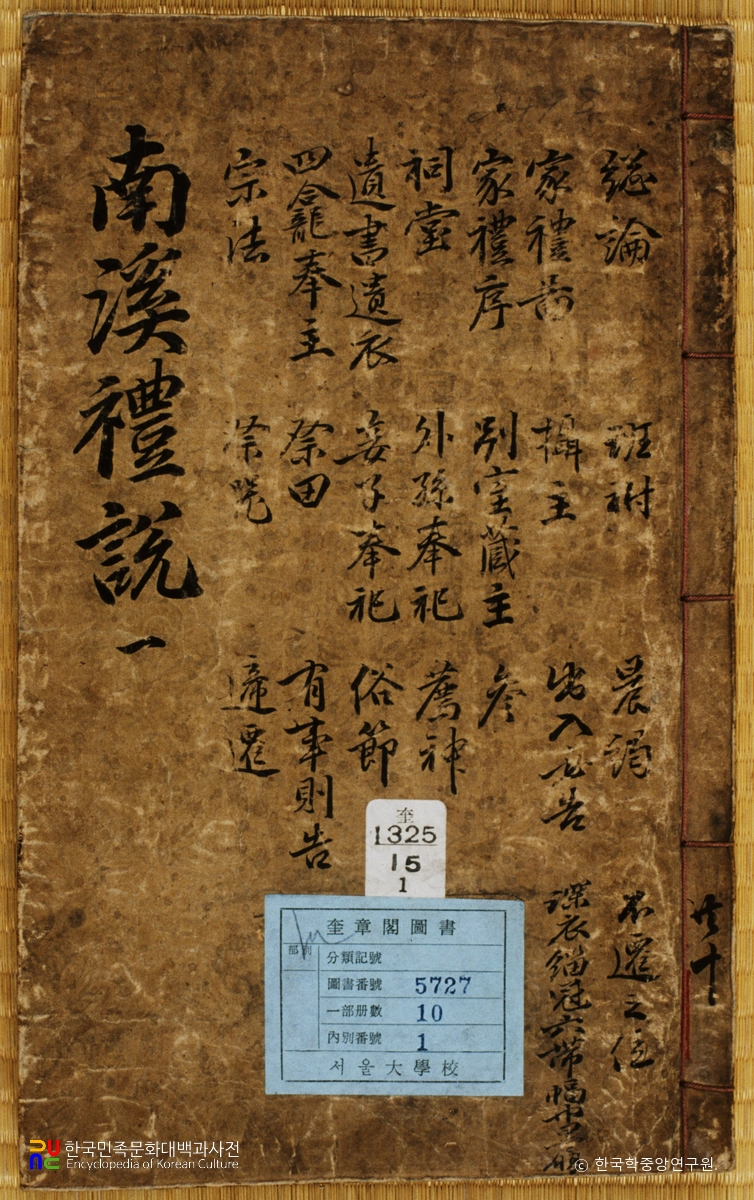 總論
家禮啚
家禮序
祠堂
遺書遺衣
四龕奉主
宗法
班祔
攝主
別室藏主
外孫奉祀
妾子奉祀
祭田
祭
晨謁
出入必告
參
薦神
俗節
有事則告
遞遷
不遷之位
深衣緇冠大帶幅巾
南溪禮說 一
共十
奎
1325
15
1
奎章閣圖書
部別
分類記號
圖書番號 5727
一部册數 10
內別番號 1
서울大學校
한국민족문화대백과사전
Encyclopedia of Korean Culture
© 한국학중앙연구원